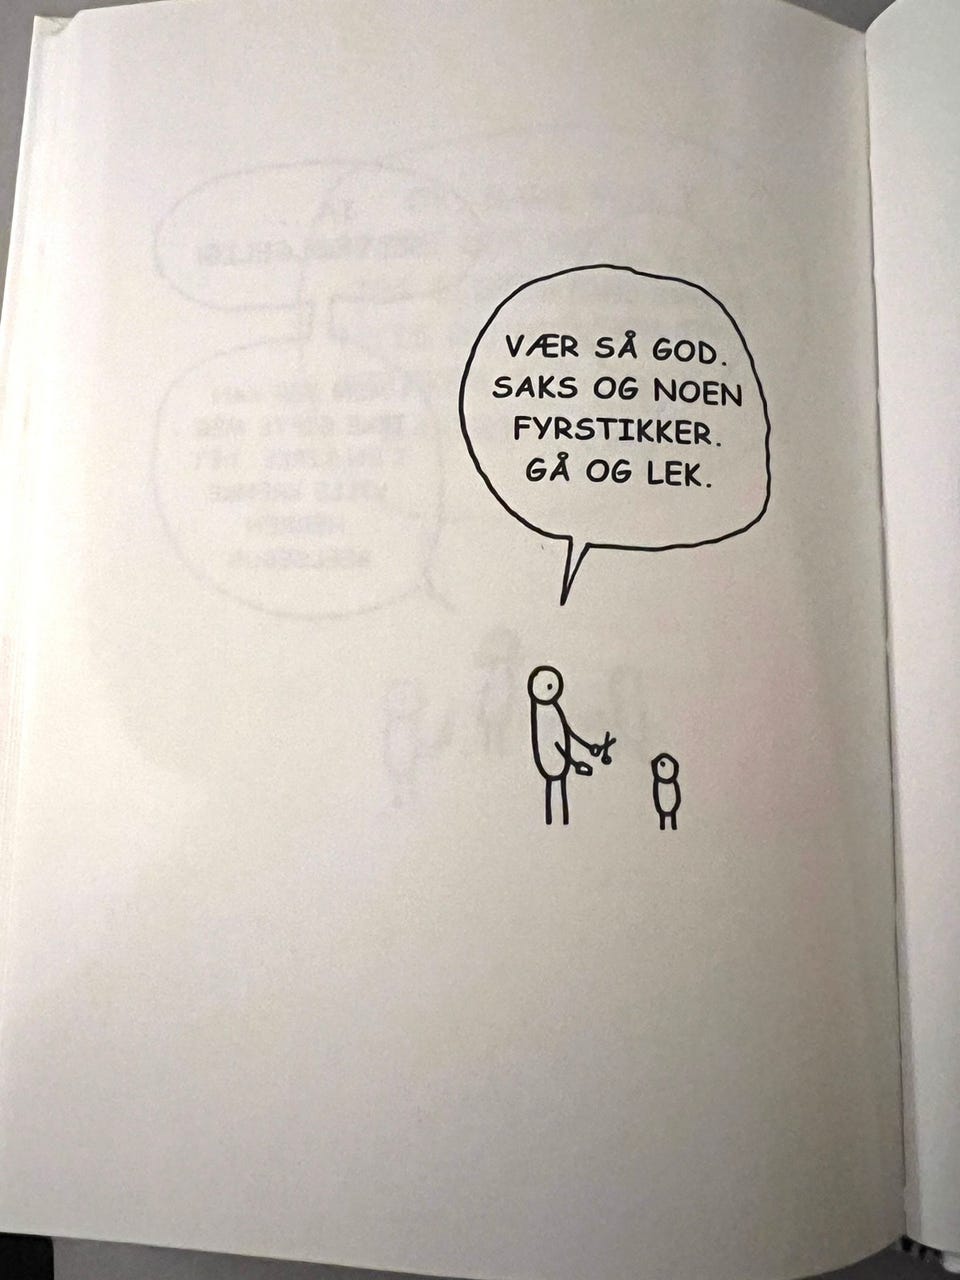 VÆR SÅ GOD.
SAKS OG NOEN
FYRSTIKKER.
GÅ OG LEK.